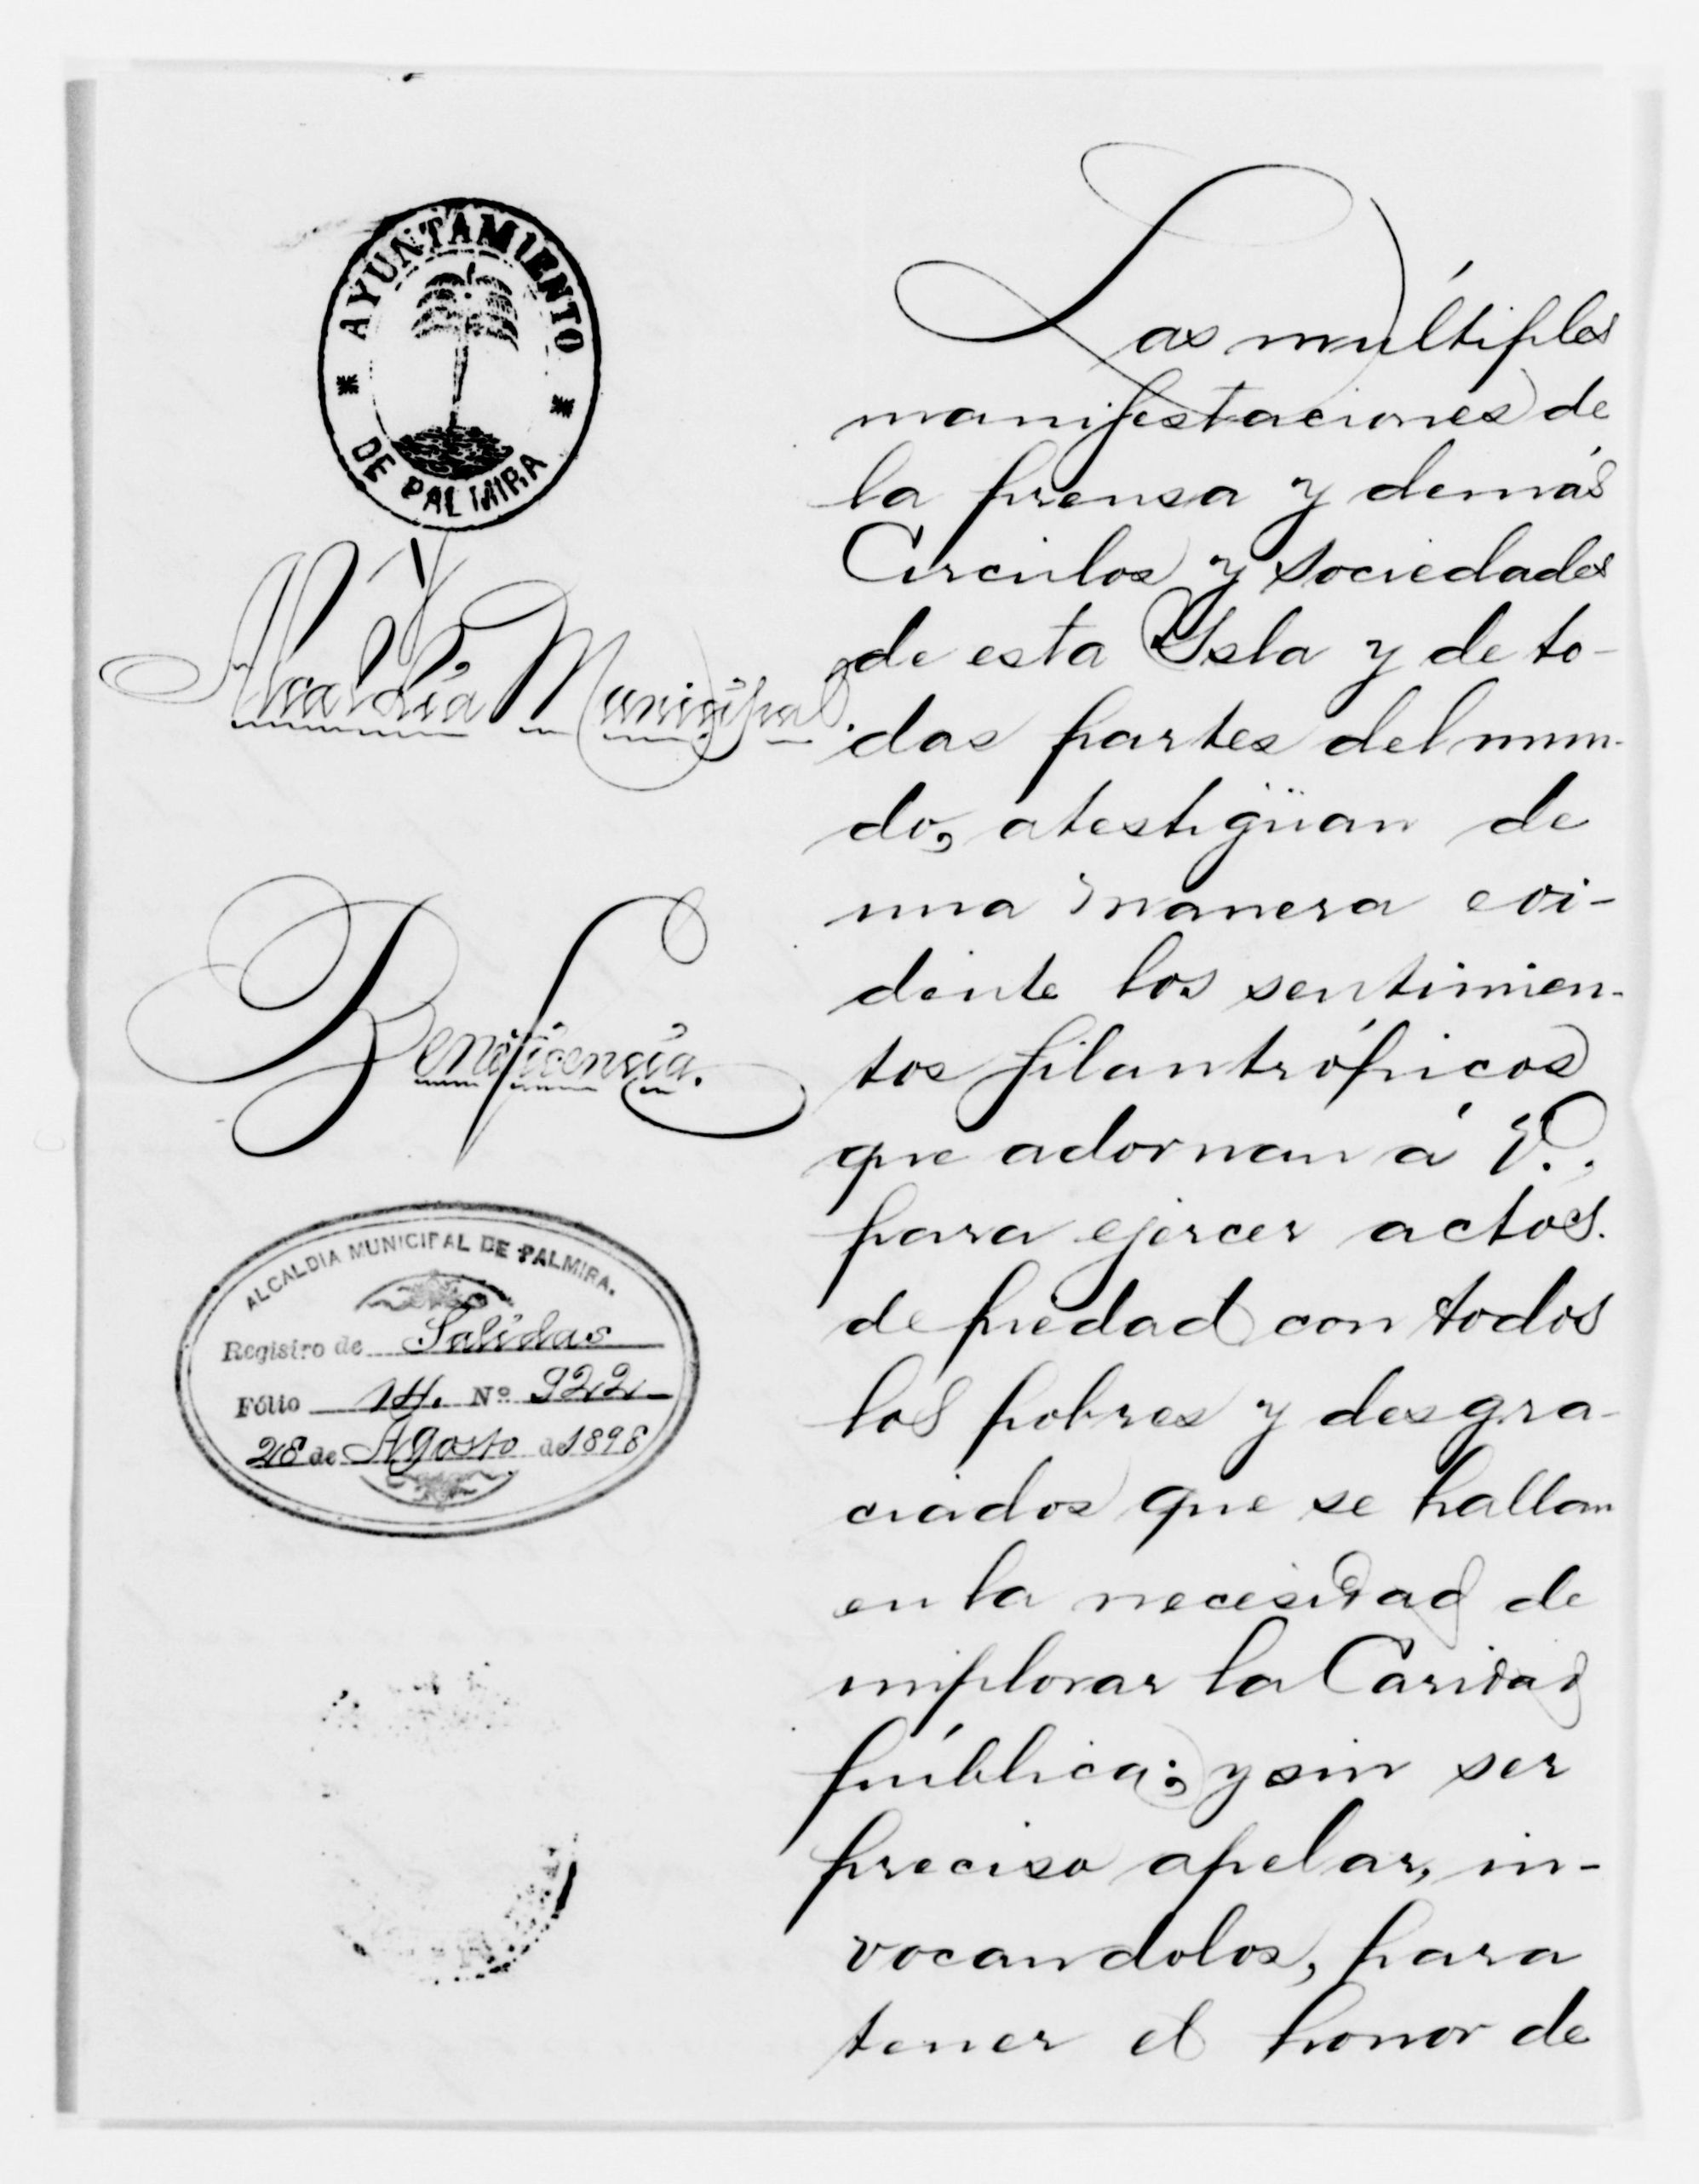 AYUNTAMIENTO
DE PALMIRA
Alcaldía Municipal.
Beneficencia.
ALCALDIA MUNICIPAL DE PALMIRA.
Registro de Salidas
Fólio 14. Nº 922
28 de Agosto de 1898
Las múltiples
manifestaciones de
la prensa y demás
Circulos y sociedades
de esta Ysla y de to-
das partes del mun-
do, atestigüan de
una manera evi-
dente los sentimien-
tos filantrópicos
que adornan á V.,
para ejercer actos.
de piedad con todos
los pobres y desgra-
ciados que se hallan
en la necesidad de
implorar la Caridad
pública; y sin ser
preciso apelar, in-
vocandolos, para
tener el honor de